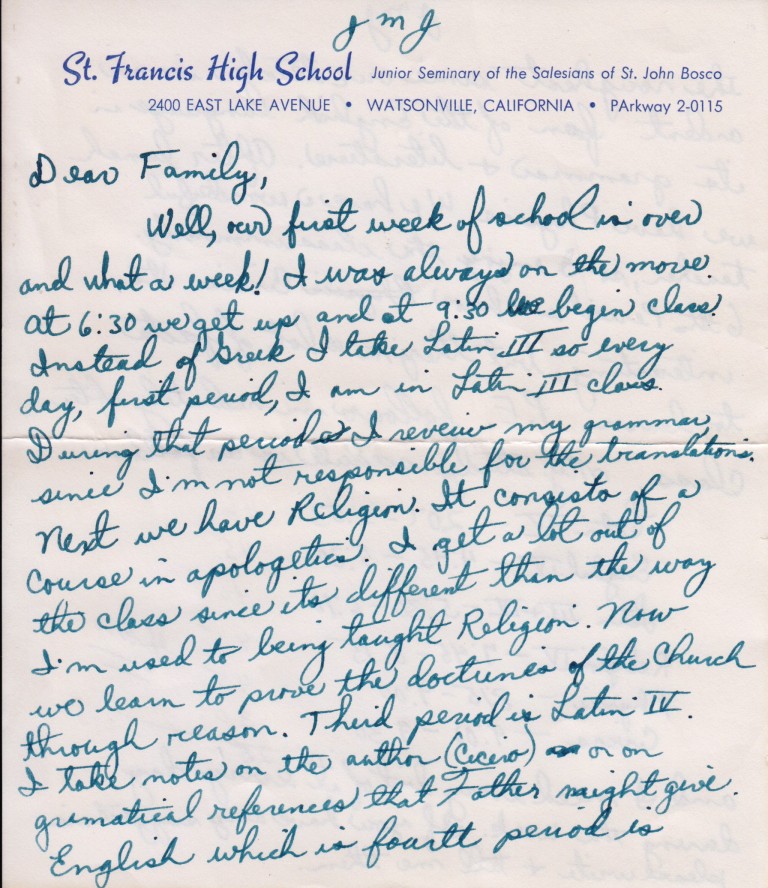 J M J
St. Francis High School Junior Seminary of the Salesians of St. John Bosco
2400 EAST LAKE AVENUE • WATSONVILLE, CALIFORNIA • PArkway 2-0115
Dear Family,
Well, our first week of school is over
and what a week! I was always on the move.
At 6:30 we get up and at 9:30 we begin class.
Instead of Greek I take Latin III so every
day, first period, I am in Latin III class.
During that period I reveiw my grammar,
since I'm not responsible for the translations.
Next we have Religion. It consists of a
course in apologetics. I get a lot out of
the class since its different than the way
I'm used to being taught Religion. Now
we learn to prove the doctrines of the Church
through reason. Third period is Latin IV.
I take notes on the author (Cicero) or on
gramatical references that Father might give.
English which is fourth period is